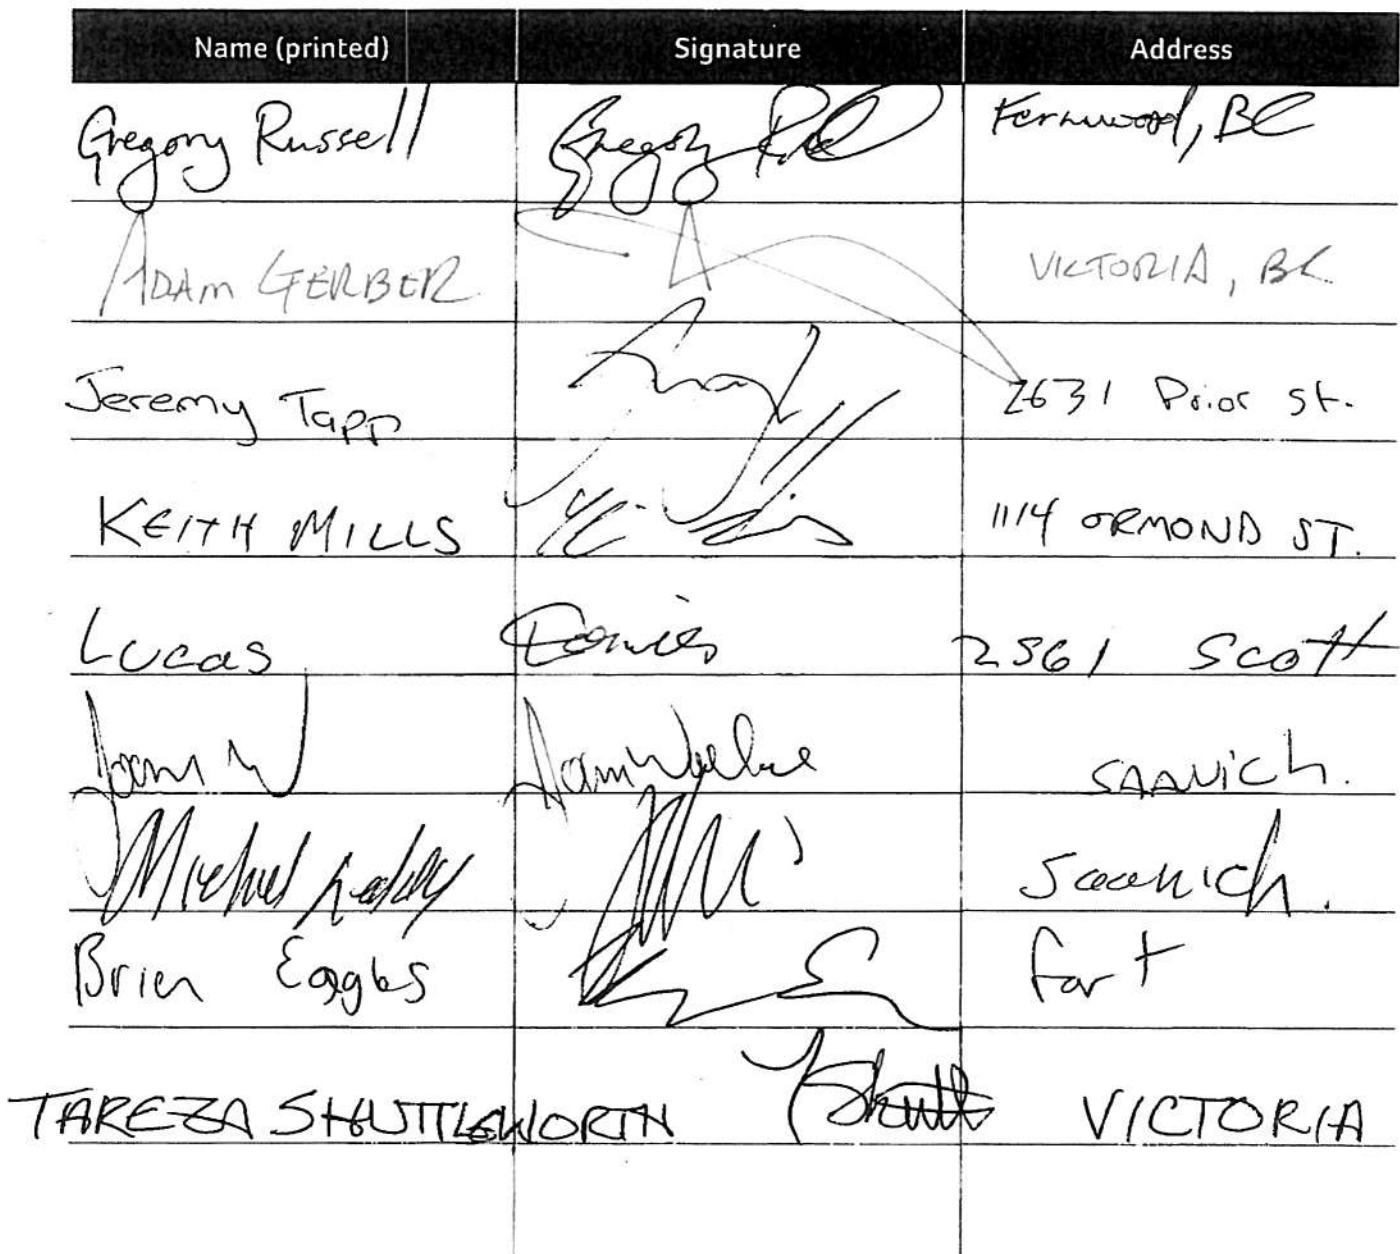 Name (printed) Signature Address
Gregory Russell Gregory Fernwood, BC
ADAM GERBER VICTORIA, BC
Jeremy Tapp 2631 Prior st.
KEITH MILLS 1114 ORMOND ST.
Lucas 2561 Scott
SAANICH.
Michael Saanich.
Brien Eagles Fort
TAREZA SHUTTLEWORTH TShutt VICTORIA